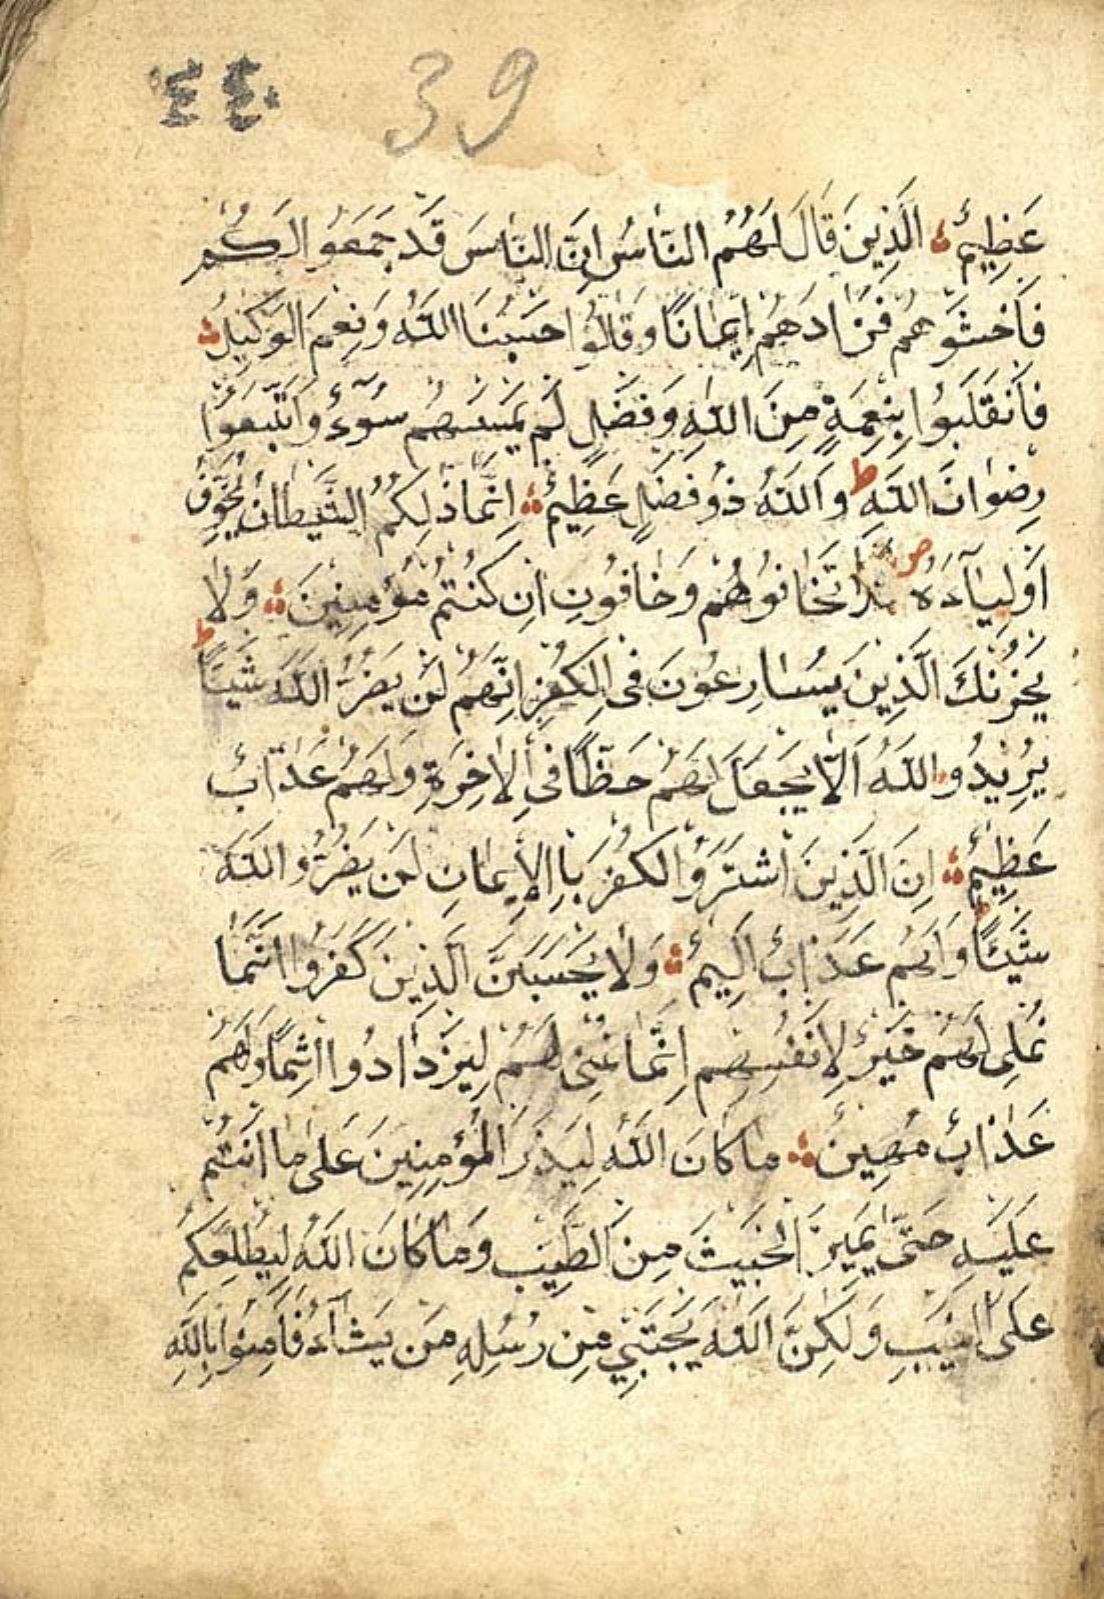 ٤٤٠ 39
عَظِيمٌ الَّذِينَ قَالَ لَهُمُ النَّاسُ اِنَّ النَّاسَ قَدْ جَمَعُوا لَكُمْ
فَاخْشَوْهُمْ فَزَادَهُمْ اِيمَانًا وَقَالُوا حَسْبُنَا اللَّهُ وَنِعْمَ الْوَكِيلُ
فَانْقَلَبُوا بِنِعْمَةٍ مِنَ اللَّهِ وَفَضْلٍ لَمْ يَمْسَسْهُمْ سُوٓءٌ وَاتَّبَعُوا
رِضْوَانَ اللَّهِ ط وَاللَّهُ ذُو فَضْلٍ عَظِيمٍ اِنَّمَا ذٰلِكُمُ الشَّيْطَانُ يُخَوِّفُ
اَوْلِيَآءَهُ ص تَخَافُوهُمْ وَخَافُونِ اِنْ كُنْتُمْ مُؤْمِنِينَ وَلَا
يَحْزُنْكَ الَّذِينَ يُسَارِعُونَ فِى الْكُفْرِ اِنَّهُمْ لَنْ يَضُرُّ اللَّهَ شَيْئًا ط
يُرِيدُ اللَّهُ اَلَّا يَجْعَلَ لَهُمْ حَظًّا فِى الْاٰخِرَةِ وَلَهُمْ عَذَابٌ
عَظِيمٌ اِنَّ الَّذِينَ اشْتَرَوُا الْكُفْرَ بِاالْاِيمَانِ لَنْ يَضُرُّوا اللَّهَ
شَيْئًا وَلَهُمْ عَذَابٌ اَلِيمٌ وَلَا يَحْسَبَنَّ الَّذِينَ كَفَرُوا اَنَّمَا
نُمْلِى لَهُمْ خَيْرٌ لِاَنْفُسِهِمْ اِنَّمَا نُمْلِى لَهُمْ لِيَزْدَادُوا اِثْمًا وَلَهُمْ
عَذَابٌ مُهِينٌ مَا كَانَ اللَّهُ لِيَذَرَ الْمُؤْمِنِينَ عَلٰى مَا اَنْتُمْ
عَلَيْهِ حَتّٰى يَمِيزَ الْخَبِيثَ مِنَ الطَّيِّبِ وَمَا كَانَ اللَّهُ لِيُطْلِعَكُمْ
عَلَى الْغَيْبِ وَلٰكِنَّ اللَّهَ يَجْتَبِي مِنْ رُسُلِهِ مَنْ يَشَآءُ فَاٰمِنُوا بِاللَّهِ